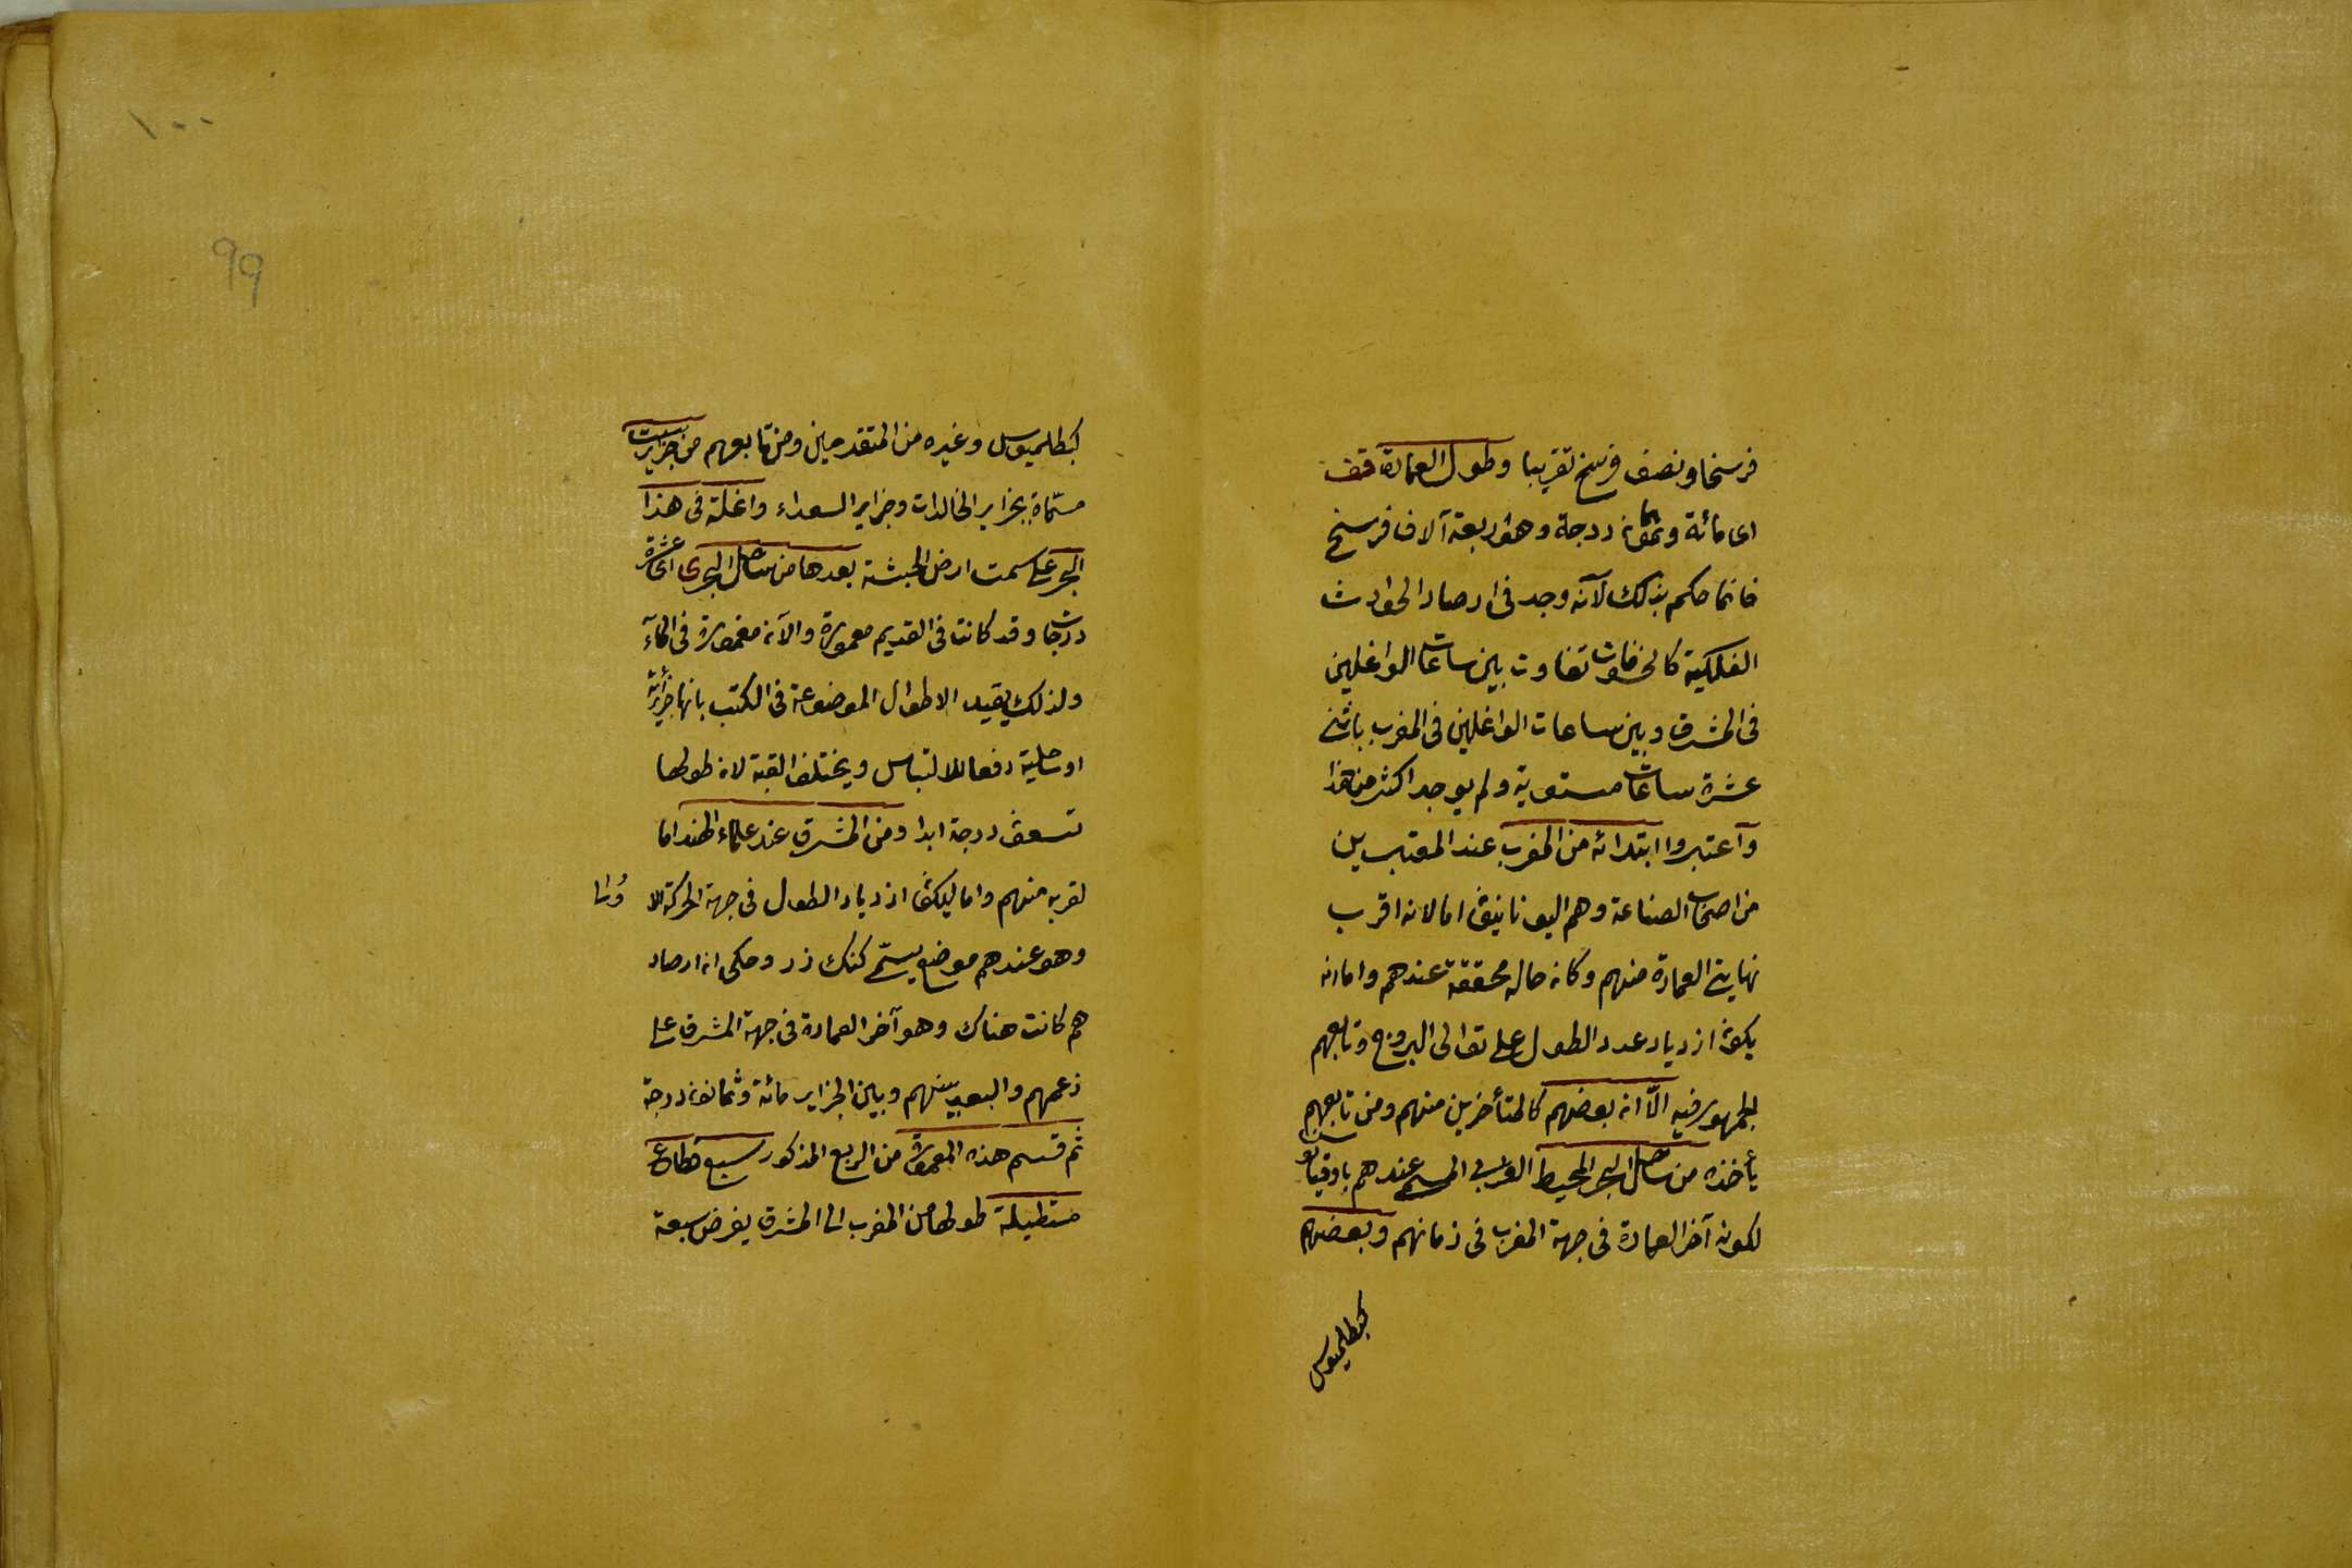 فرسخا ونصف فرسخ تقريبا وطول العمارة قف
اى مائة وثمانون درجة وهو اربعة آلاف فرسخ
فانما حكم بذلك لأنه وجد فى ارصاد الحوادث
الفلكية كالخسوفات تفاوت بين ساعات الواغلين
فى المشرق وبين ساعات الواغلين فى المغرب باثنى
عشرة ساعات مستوية ولم يوجد اكثر من هذا
وآعتبروا ابتدائه من المغرب عند المعتبرين
من اصحاب الصناعة وهم اليونانيون اما لانه اقرب
نهايتى العمارة منهم وكان حاله محققة عندهم واما لانه
يكون ازدياد عدد الطول على توالى البروج وتابعهم
الجمهور فيه الّا ان بعضهم كالمتأخرين منهم ومن تابعهم
يأخذه من ساحل البحر المحيط الغربى المسمى عندهم باوقيانوس
لكونه آخر العمارة فى جهة المغرب فى زمانهم وبعضهم
كبطلميوس
١٠٠
99
كبطلميوس وغيره من المتقدمين ومن تابعهم من جزاير ست
مسمّاة بجزاير الخالدات وجزاير السعداء واغلة فى هذا
البحر على سمت ارض الحبشة بعدها من ساحل البحر ى اى عشرة
درجات وقد كانت فى القديم معمورة والآن مغمورة فى المآء
ولذلك يقيد الاطوال الموضوعة فى الكتب بانها جزائرية
او ساحلية دفعا للالتباس ويختلف القبة لان طولها
تسعون درجة ابدا ومن المشرق عند علماء الهند اما
لقربه منهم واما ليكون ازدياد الطول فى جهة الحركة الا
ولى
وهو عندهم موضع يسمّى كنك دز وحكى ان ارصاد
هم كانت هناك وهو آخر العمارة فى جهة المشرق على
زعمهم والبعد بينهم وبين الجزاير مائة وثمانون درجة
ثم قسم هذه المعمورة من الربع المذكور سبع قطاع
مستطيلة طولها من المغرب الى المشرق يفرض سبعة